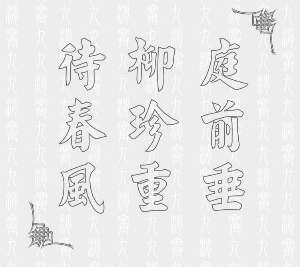 庭前垂
柳珍重
待春風